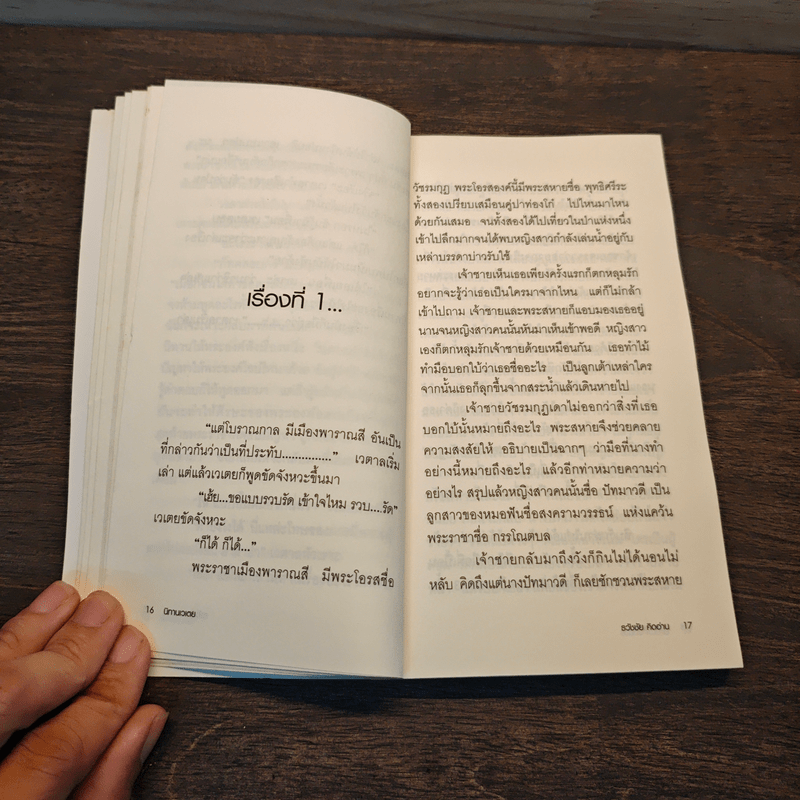 เรื่องที่ 1...
"แต่โบราณกาล มีเมืองพาราณสี อันเป็น
ที่กล่าวกันว่าเป็นที่ประทับ..............." เวตาลเริ่ม
เล่า แต่แล้วเวเตยก็พูดขัดจังหวะขึ้นมา
"เฮ้ย...ขอแบบรวบรัด เข้าใจไหม รวบ....รัด"
เวเตยขัดจังหวะ
"ก็ได้ ก็ได้..."
พระราชาเมืองพาราณสี มีพระโอรสชื่อ
16 นิทานเวเตย
วัชรมกุฎ พระโอรสองค์นี้มีพระสหายชื่อ พุทธิศรีระ
ทั้งสองเปรียบเสมือนคู่ปาท่องโก๋ ไปไหนมาไหน
ด้วยกันเสมอ จนทั้งสองได้ไปเที่ยวในป่าแห่งหนึ่ง
เข้าไปลึกมากจนได้พบหญิงสาวกำลังเล่นน้ำอยู่กับ
เหล่าบรรดาบ่าวรับใช้
เจ้าชายเห็นเธอเพียงครั้งแรกก็ตกหลุมรัก
อยากจะรู้ว่าเธอเป็นใครมาจากไหน แต่ก็ไม่กล้า
เข้าไปถาม เจ้าชายและพระสหายก็แอบมองเธออยู่
นานจนหญิงสาวคนนั้นหันมาเห็นเข้าพอดี หญิงสาว
เองก็ตกหลุมรักเจ้าชายด้วยเหมือนกัน เธอทำไม้
ทำมือบอกใบ้ว่าเธอชื่ออะไร เป็นลูกเต้าเหล่าใคร
จากนั้นเธอก็ลุกขึ้นจากสระน้ำแล้วเดินหายไป
เจ้าชายวัชรมกุฎเดาไม่ออกว่าสิ่งที่เธอ
บอกใบ้นั้นหมายถึงอะไร พระสหายจึงช่วยคลาย
ความสงสัยให้ อธิบายเป็นฉากๆ ว่ามือที่นางทำ
อย่างนี้หมายถึงอะไร แล้วอีกท่าหมายความว่า
อย่างไร สรุปแล้วหญิงสาวคนนั้นชื่อ ปัทมาวดี เป็น
ลูกสาวของหมอฟันชื่อสงครามวรรธน์ แห่งแคว้น
พระราชาชื่อ กรรโณตบล
เจ้าชายกลับมาถึงวังก็กินไม่ได้นอนไม่
หลับ คิดถึงแต่นางปัทมาวดี ก็เลยชักชวนพระสหาย
ธวัชชัย คิดอ่าน 17